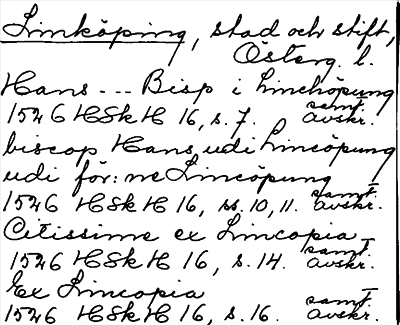 Linköping, stad och stift,
Österg. l.
Hans --- Bisp i Linchöpung
1526 HSkH 16, s. 7. samt. avskr.
biscop Hans, udi Lincöpung
udi för: ne Lincöpung
1526 HSkH 16, ss. 10, 11. samt. avskr.
Citissime ex Lincopia
1526 HSkH 16, s. 14. samt. avskr.
Ex Lincopia
1526 HSkH 16, s. 16. samt. avskr.